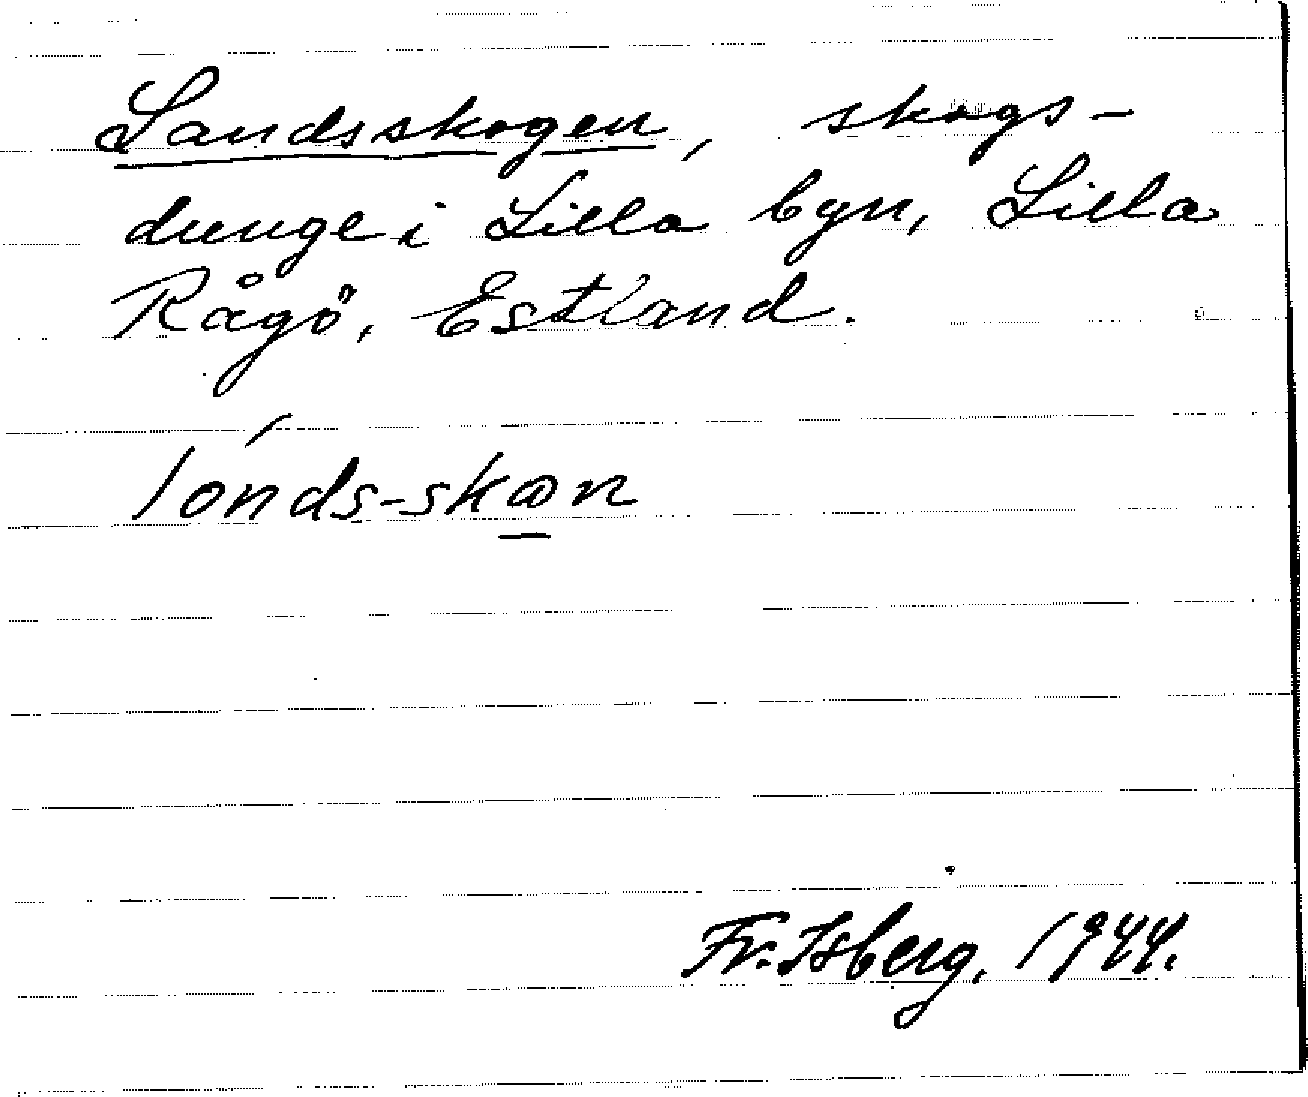 Landsskogen, skogs-
dunge i Lilla byn, Lilla
Rågö, Estland.
lónds-skωn
Fr. Isberg. 1944.